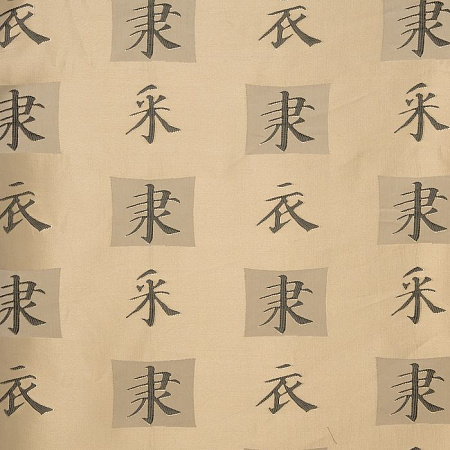 衣 隶 衣 隶
隶 釆 隶 釆
衣 隶 衣 隶
隶 釆 隶 釆
衣 隶 衣 隶